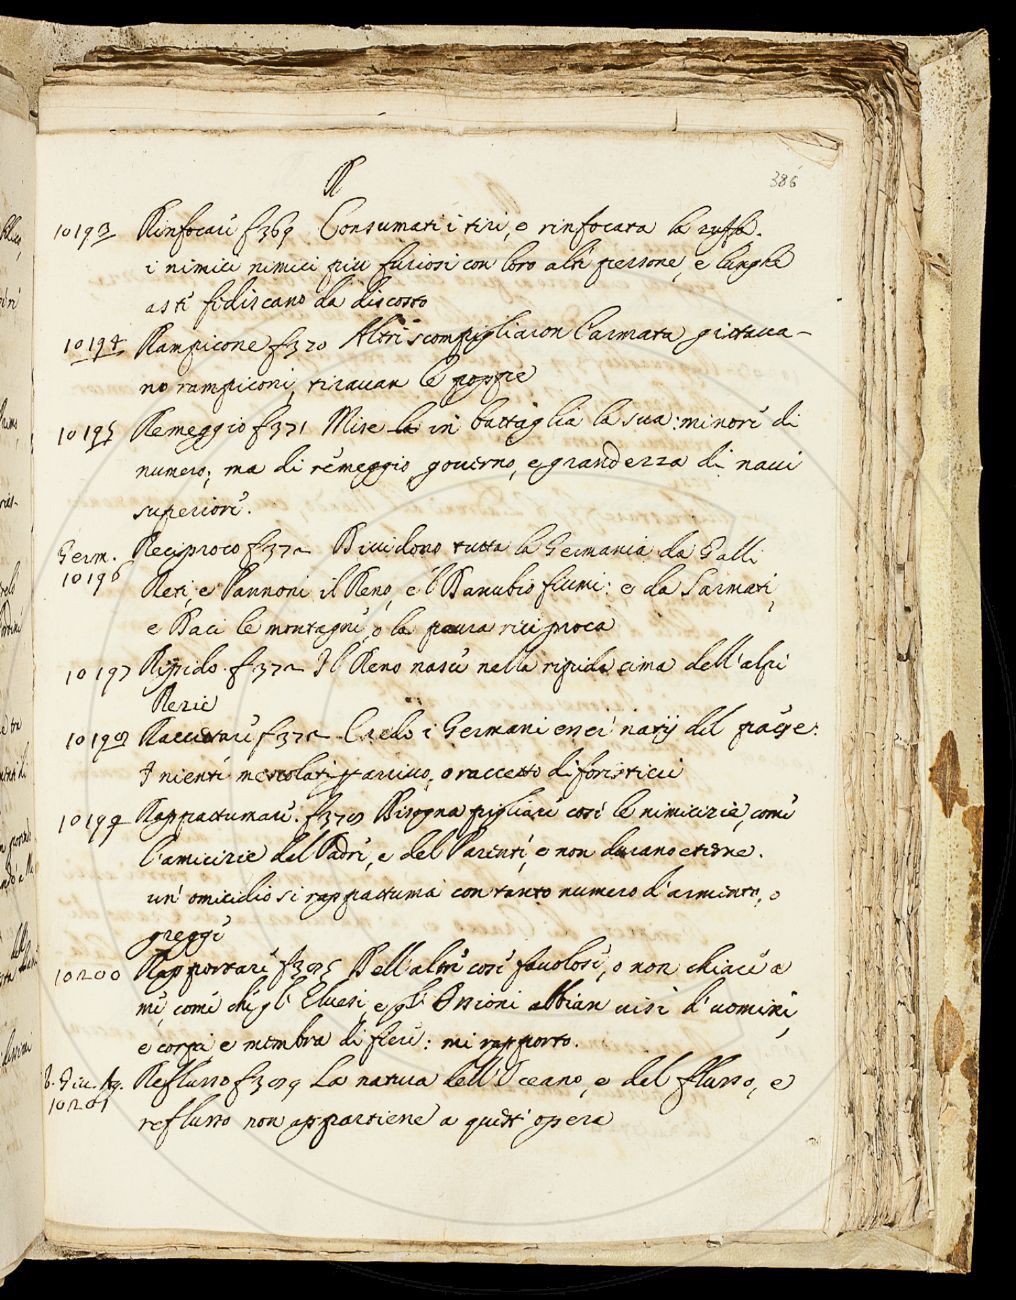 R 386
10193 Rinfocare f 369 Consumati i tiri, e rinfocata la zuffa.
i nimici nimici piu furiosi con loro alte persone, e lunghe
asti fediscano da discosto
10194 Rampicone f 370 Altri scompigliaron l'armata gittava-
no rampiconi, tiravan le poppe
10195 Remeggio f 371 Mise la in battaglia la sua: minore di
numero; ma di remeggio, governo, e grandezza di navi
superiore.
Germ. Reciproco f 372 Dividono tutta la Germania da Galli
10196 Reti, e Pannoni il Reno, e 'l Danubio fiumi: e da Sarmati,
e Daci le montagne, o la paura riciproca
10197 Ripido. f 372 Il Reno nasce nella ripida cima dell'alpi
Rezie
10198 Raccettare f 372 Credo i Germani esser natij del paese:
Inienti mescolati per arrivo, o raccetto di foresticii
10199 Rappattumare. f 378 Bisogna pigliare cosi le nimicizie, come
l'amicizie del Padre, e del Parenti, e non durano eterne.
un' omicidio si rappattuma con tanto numero d'armento, o
greggi
10200 Rapportare f 385 Dell'altre cose favolose, o non chiare a
me, come che gl' Elvesi, e gl' Ossioni abbian visi d'uomini,
e corpi, e membra di fiere: mi rapporto.
B. Giu. Ag. Reflusso f 389 La natura dell'Oceano, e del flusso, e
10201 reflusso non appartiene a quest' opera